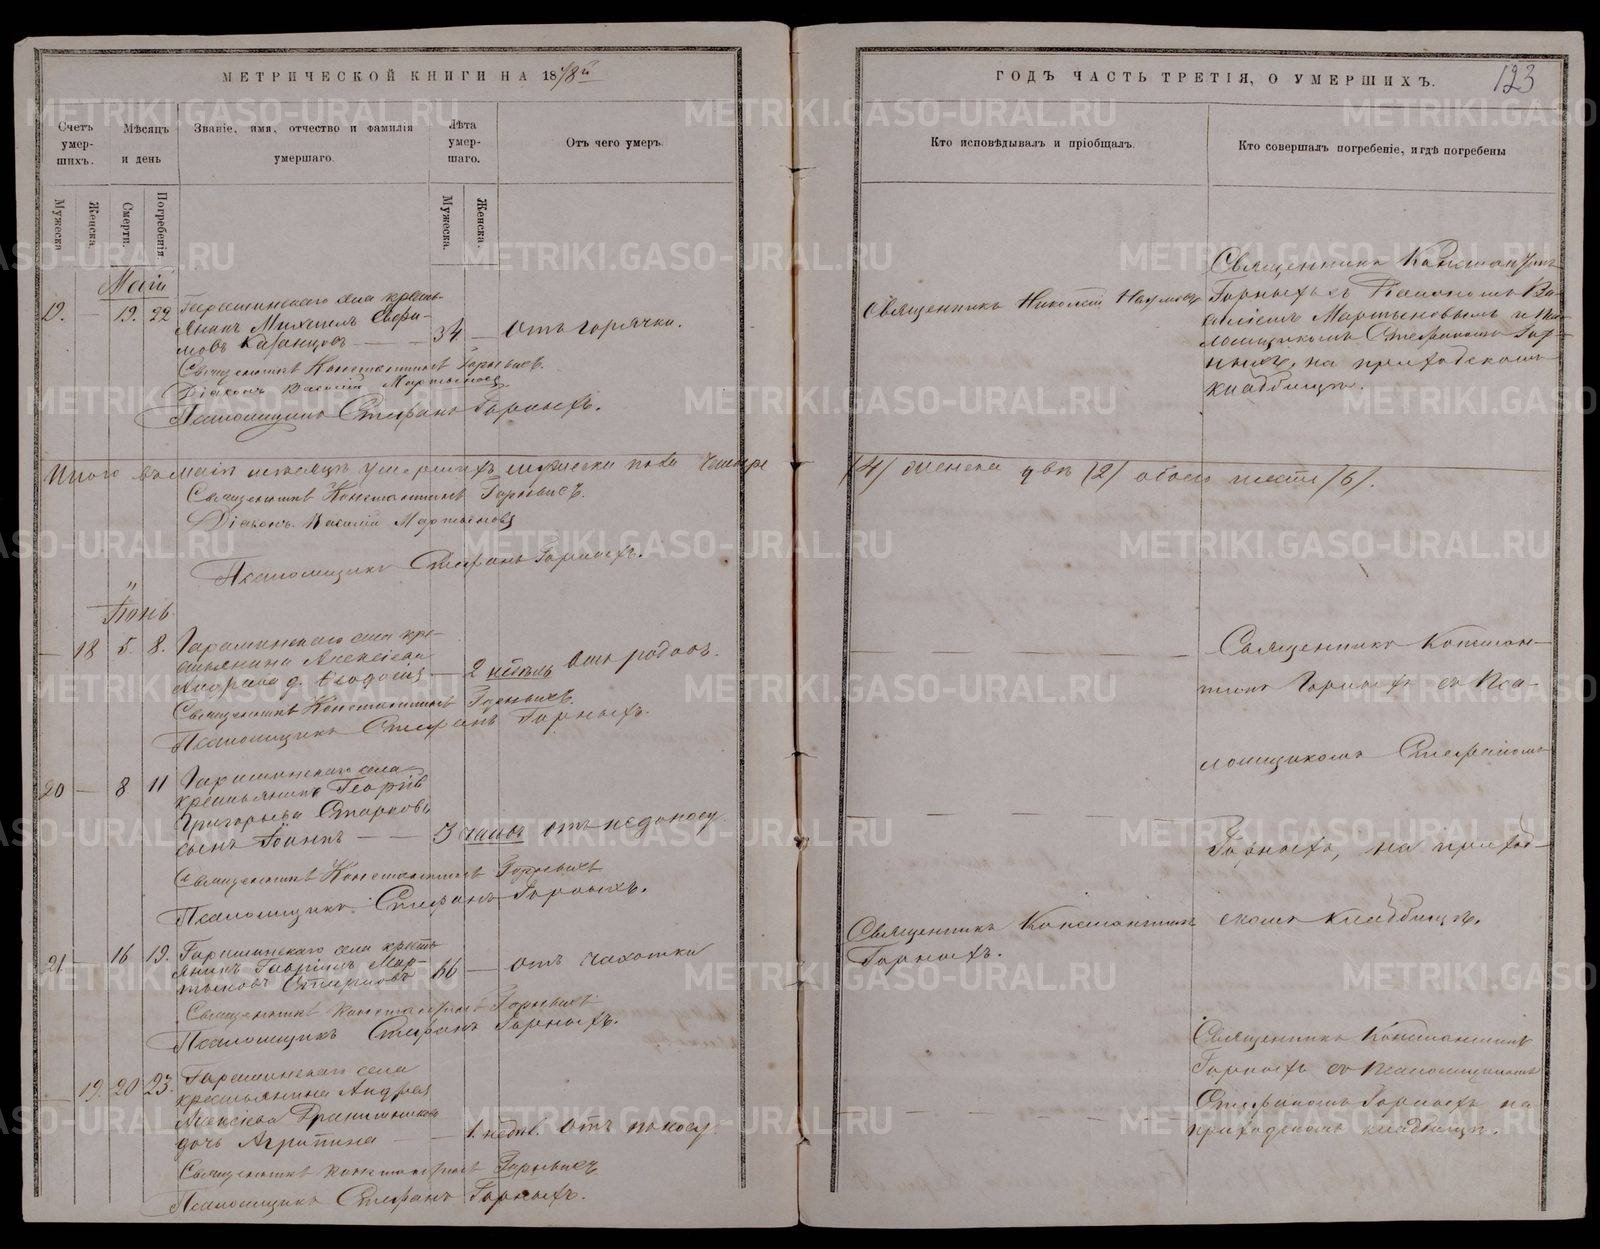 МЕТРИЧЕСКОЙ КНИГИ НА 1878й
Счетъ умер-шихъ.
Мѣсяцъ и день
Званіе, имя, отчество и фамилія умершаго.
Лѣта умер-шаго.
Отъ чего умеръ.
Мужеска
Женска.
Смерти.
Погребенія.
Мужеска.
Женска.
Май
19. — 19. 22
села кресть-
янинъ Михаилъ
Казанцовъ — —
34 — отъ горячки.
Священникъ Константинъ Горныхъ.
Діаконъ Василій Мартыновъ
Псаломщикъ Стефанъ Горныхъ.
Итого въ маѣ месяцѣ умершихъ мужеска пола четыре
Священникъ Константинъ Горныхъ.
Діаконъ Василій Мартыновъ
Псаломщикъ Стефанъ Горныхъ.
Іюнь
— 18 5. 8.
села кре-
стьянина Алексѣева
д. Ѳеодосія — 2 недѣль Отъ родовъ.
Священникъ Константинъ Горныхъ.
Псаломщикъ Стефанъ Горныхъ.
20 — 8 11
села
крестьянина Георгія
Григорьева Старкова
сынъ Іоаннъ — — 3 часовъ отъ недоносу
Священникъ Константинъ Горныхъ
Псаломщикъ Стефанъ Горныхъ.
21 — 16 19.
села кресть-
янинъ Гавріилъ Мар-
тыновъ 66 — отъ чахотки
Священникъ Константинъ Горныхъ
Псаломщикъ Стефанъ Горныхъ.
19. 20 23.
села
крестьянина Андрея
дочь Агрипина — 1. недѣл. отъ поносу
Священникъ Константинъ Горныхъ
Псаломщикъ Стефанъ Горныхъ.
ГОДЪ ЧАСТЬ ТРЕТІЯ, О УМЕРШИХЪ.
123
Кто исповѣдывалъ и пріобщалъ.
Кто совершалъ погребеніе, и гдѣ погребены
Священникъ Николай Наумовъ
Священникъ Константинъ
Горныхъ съ Діакономъ Ва-
силіемъ Мартыновымъ и Пса-
ломщикомъ Стефаномъ Гор-
ныхъ, на приходскомъ
кладбищѣ.
(4) женска двѣ (2) обоего шесть (6).
Священникъ Констан-
тинъ Горныхъ съ Пса-
ломщикомъ Стефаномъ
Горныхъ, на приход-
скомъ кладбищѣ.
Священникъ Константинъ
Горныхъ.
Священникъ Константинъ
Горныхъ съ Псаломщикомъ
Стефаномъ Горныхъ на
приходскомъ кладбищѣ.
METRIKI.GASO-URAL.RU